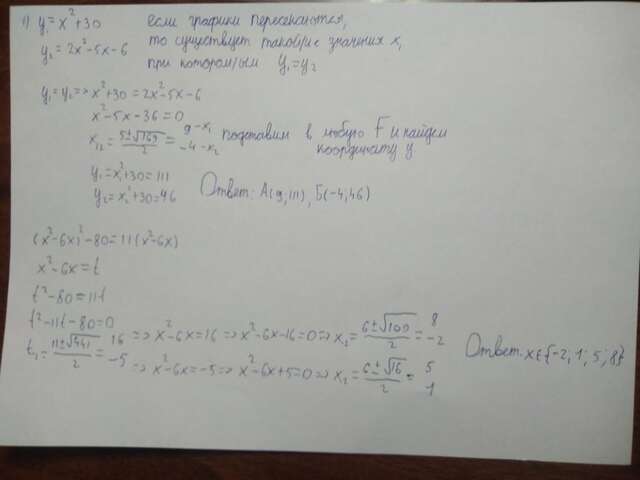 1) y₁ = x² + 30 если графики пересекаются,
y₂ = 2x² - 5x - 6 то существует такое/ие значения x,
при котором/ым y₁ = y₂
y₁ = y₂ => x² + 30 = 2x² - 5x - 6
x² - 5x - 36 = 0
x₁,₂ = (5 ± √169)/2 = 9 - x₁ -4 - x₂ подставим в любую F и найдем
координату y
y₁ = x₁² + 30 = 111
y₂ = x₂² + 30 = 46 Ответ: А(9; 111), Б(-4; 46)
(x² - 6x)² - 80 = 11(x² - 6x)
x² - 6x = t
t² - 80 = 11t
t² - 11t - 80 = 0
t₁ = (11 ± √441)/2 = 16 => x² - 6x = 16 => x² - 6x - 16 = 0 => x₂ = (6 ± √100)/2 = 8 -2
-5 => x² - 6x = -5 => x² - 6x + 5 = 0 => x₂ = (6 ± √16)/2 = 5 1
Ответ: x ∈ {-2; 1; 5; 8}